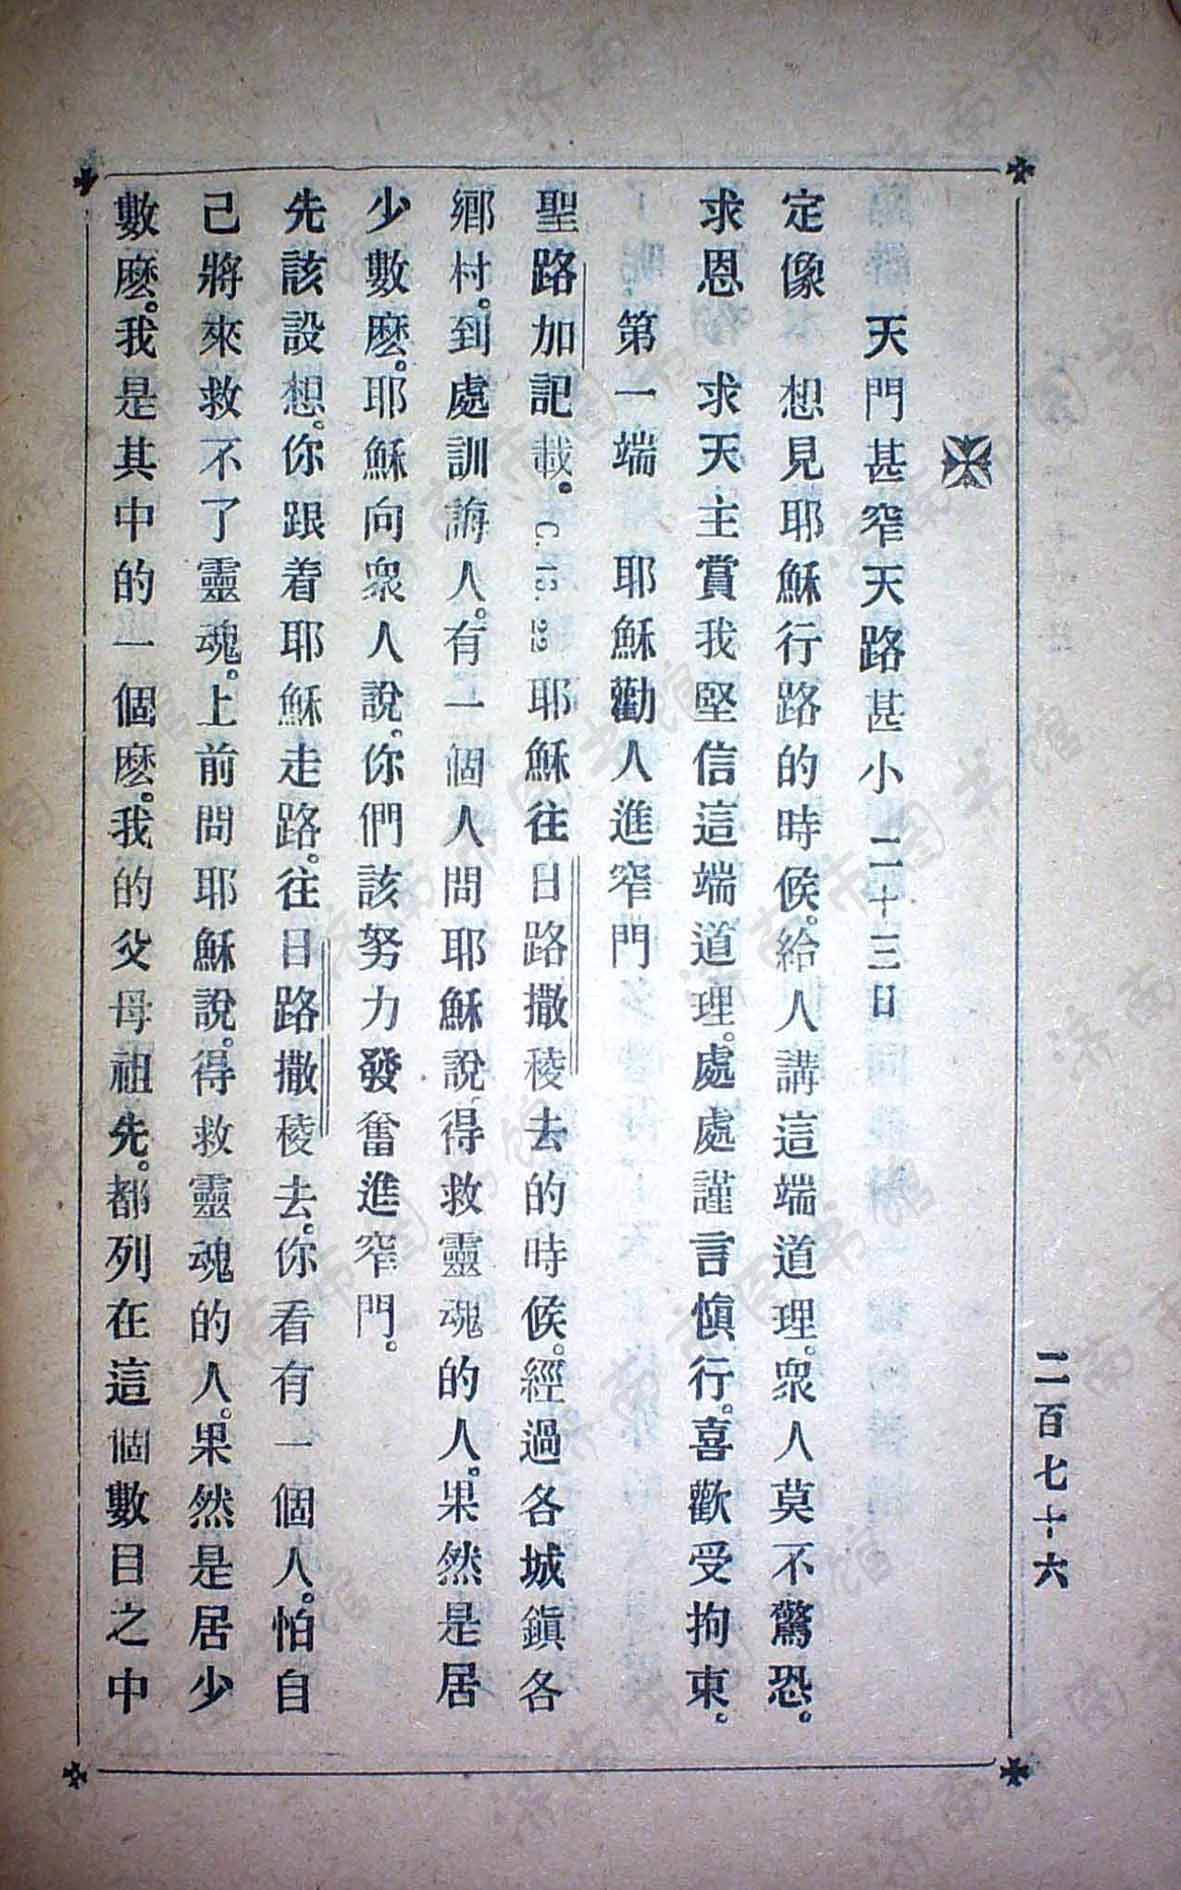 天門甚窄天路甚小 二十三日
定像 想見耶穌行路的時候。給人講這端道理。衆人莫不驚恐。
求恩 求天主賞我堅信這端道理。處處謹言愼行。喜歡受拘束。
第一端 耶穌勸人進窄門
聖路加記載。C. 13. 22 耶穌往日路撒稜去的時候。經過各城鎭各
鄉村。到處訓誨人。有一個人問耶穌說。得救靈魂的人。果然是居
少數麽。耶穌向衆人說。你們該努力發奮進窄門。
先該設想。你跟着耶穌走路。往日路撒稜去。你看有一個人。怕自
己將來救不了靈魂。上前問耶穌說。得救靈魂的人。果然是居少
數麽。我是其中的一個麽。我的父母祖先。都列在這個數目之中
二百七十六
济南市图书馆